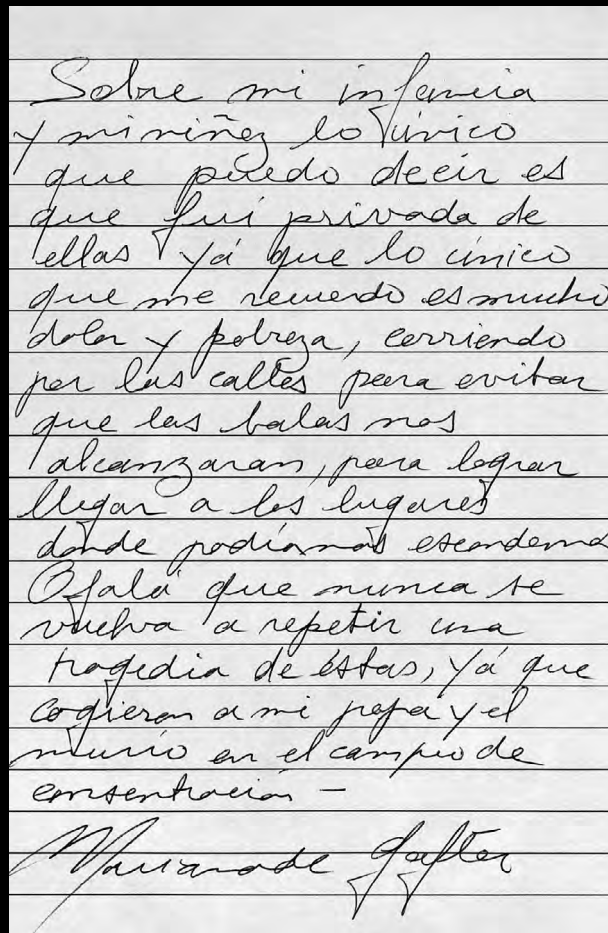 Sobre mi infancia
y mi niñez lo único
que puedo decir es
que fuí privada de
ellas yá que lo único
que me recuerdo es mucho
dolor y pobreza, corriendo
por las calles para evitar
que las balas nos
alcanzaran, para lograr
llegar a los lugares
donde podíamos escondernos
Ojalá que nunca se
vuelva a repetir una
tragedia de éstas, yá que
cogieron a mi papa y el
murío en el campo de
consentración –
de Gafter